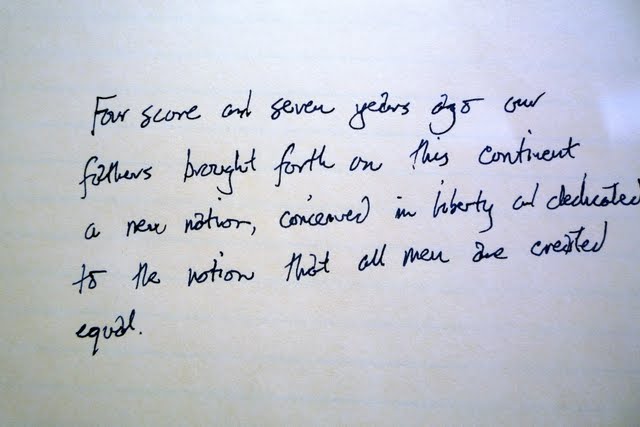 Four score and seven years ago our
fathers brought forth on this continent
a new nation, conceived in liberty and dedicated
to the notion that all men are created
equal.